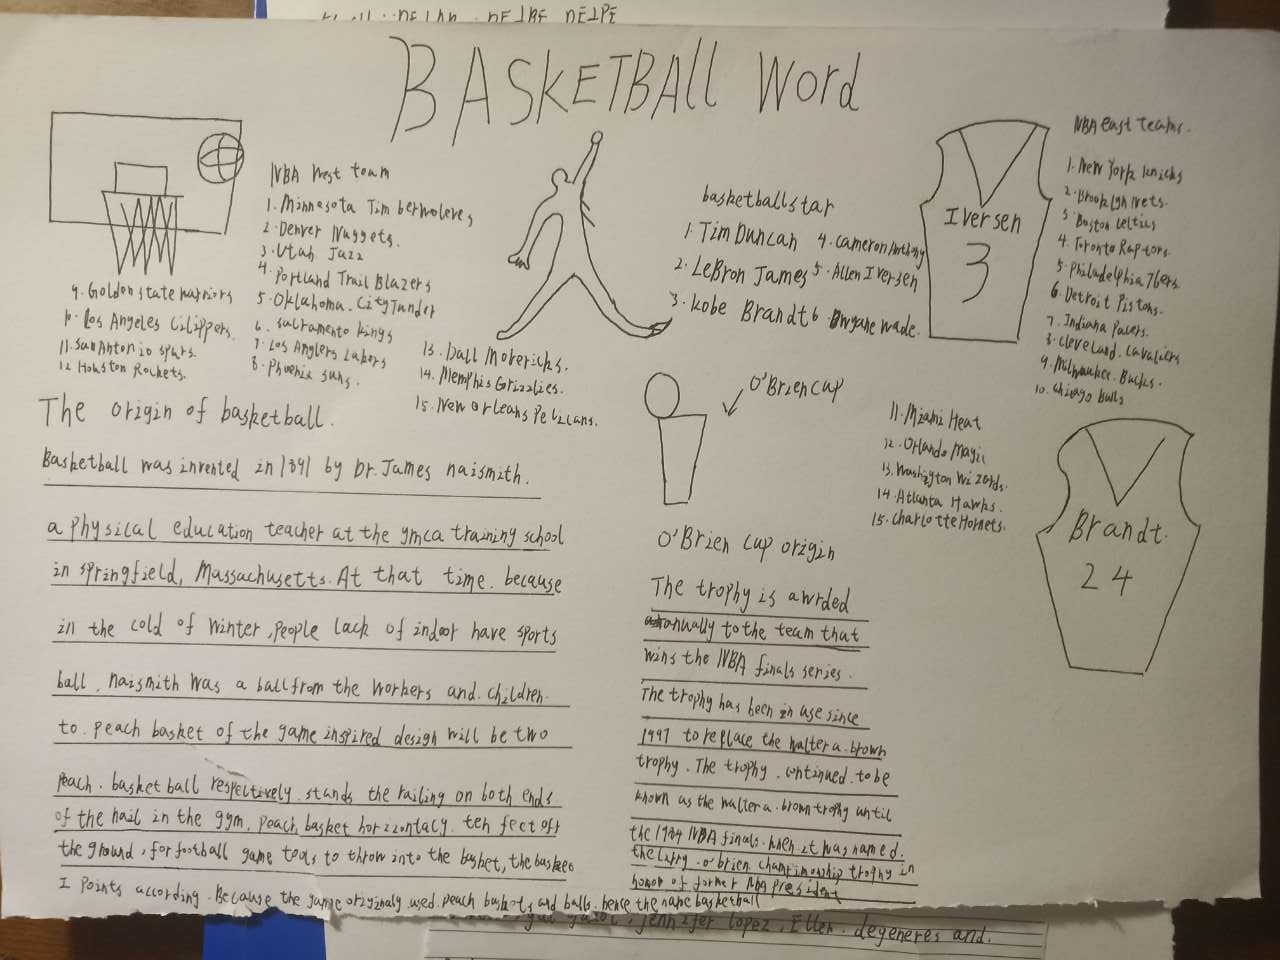 BASKETBAll Word
NBA West team
1. Minnesota Timberwoleves
2. Denver Nuggets.
3. Utah Jazz
4. Portland Trail Blazers
5. Oklahoma. City Tunder
6. Sacramento kings
7. Los Anglers Lakers
8. Phoenix suns.
9. Golden state warriors
10. Los Angeles Cilippers.
11. San Antonio spurs.
12 Houston Rockets.
13. Dall Movericks.
14. Memphis Grizzlies.
15. New Orleans Pelicans.
basketball star
1. Tim Duncan 4. Cameron Anthony
2. LeBron James 5. Allen Iversen
3. kobe Brandt 6. Dwyane wade.
Iversen
3
NBA east teams.
1. New York knicks
2. Brooklyn Nets.
3 Boston Celtics
4. Toronto Raptors.
5. Philadelphia 76ers.
6. Detroit Pistons.
7. Indiana Pacers.
8. Cleveland. Cavaliers
9. Milwaukee. Bucks.
10. Chicago Bulls
11. Miami Heat
12. Orlando Magic
13. Washington Wizards.
14 Atlanta Hawks.
15. Charlotte Hornets.
Brandt.
24
The origin of basketball.
Basketball was invented in 1891 by Dr. James naismith.
a physical education teacher at the ymca training school
in springfield, Massachusetts. At that time. because
in the cold of winter, people lack of indoor have sports
ball. naismith was a ball from the workers and. children.
to. peach basket of the game inspired design will be two
Peach. basket ball respectively. stands the railing on both ends
of the hail in the gym. Peach basket horizzontacy. ten feet off
the ground, for football game tools to throw into the basket, the basket
I Points according. Because the game originaly used. peach baskets and balls. hence the name basketball
O'Brien cup
O'Brien cup origin
The trophy is awrded
anually to the team that
wins the NBA finals series.
The trophy has been in use since
1997 to replace the walter a. brown
trophy. The trophy. continued. to be
known as the walter a. brown trophy until
the 1984 NBA finals. when it was named.
the larry. o'brien champrionship trophy in
honor of former NBA president
jennifer lopez, Ellen. degeneres and.